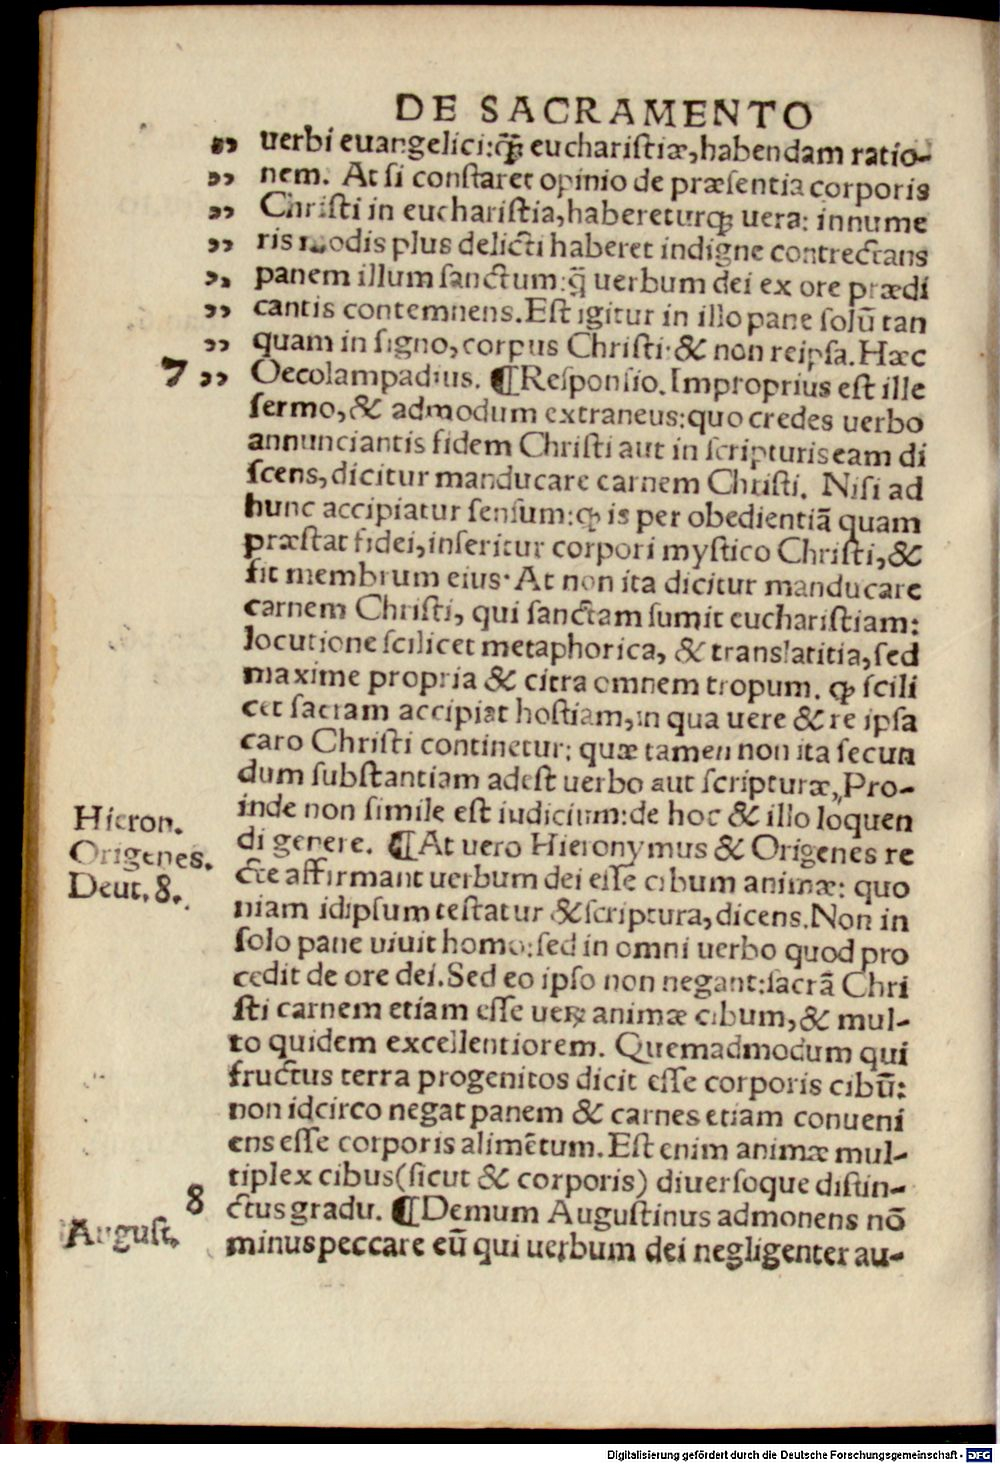 DE SACRAMENTO
„ uerbi euangelici:ꝙ̃ eucharistiæ,habendam ratio-
„ nem. At si constaret opinio de præsentia corporis
„ Christi in eucharistia,habereturqꝫ uera: innume
„ ris modis plus delicti haberet indigne contrectans
„ panem illum sanctum:q̃ uerbum dei ex ore prædi
„ cantis contemnens.Est igitur in illo pane solũ tan
„ quam in signo,corpus Christi:& non reipsa.Hæc
7 „ Oecolampadius. ¶Responsio.Improprius est ille
sermo,& admodum extraneus:quo credes uerbo
annunciantis fidem Christi aut in scripturis eam di
scens,dicitur manducare carnem Christi. Nisi ad
hunc accipiatur sensum:ꝙ is per obedientiã quam
præstat fidei,inseritur corpori mystico Christi,&
fit membrum eius. At non ita dicitur manducare
carnem Christi, qui sanctam sumit eucharistiam:
locutione scilicet metaphorica, & translatitia,sed
maxime propria & citra omnem tropum. ꝙ scili
cet sacram accipiat hostiam,in qua uere & re ipsa
caro Christi continetur: quæ tamen non ita secun
dum substantiam adest uerbo aut scripturæ, Pro-
inde non simile est iudicium:de hoc & illo loquen
di genere. ¶At uero Hieronymus & Origenes re
cte affirmant uerbum dei esse cibum animæ: quo
niam idipsum testatur & scriptura,dicens.Non in
solo pane uiuit homo:sed in omni uerbo quod pro
cedit de ore dei.Sed eo ipso non negant:sacrã Chri
sti carnem etiam esse uerũ animæ cibum,& mul-
to quidem excellentiorem. Quemadmodum qui
fructus terra progenitos dicit esse corporis cibũ:
non idcirco negat panem & carnes etiam conueni
ens esse corporis alimẽtum.Est enim animæ mul-
tiplex cibus(sicut & corporis) diuersoque distin-
8 ctus gradu. ¶Demum Augustinus admonens nõ
minus peccare eũ qui uerbum dei negligenter au-
Hieron.
Origenes.
Deut. 8.
August.
Digitalisierung gefördert durch die Deutsche Forschungsgemeinschaft - DFG